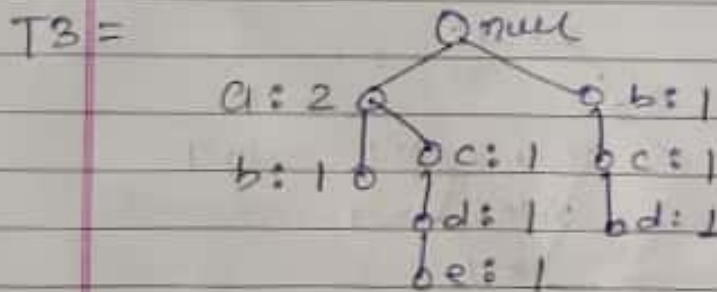 T3 =
null
a : 2 b : 1
b : 1 c : 1 c : 1
d : 1 d : 1
e : 1